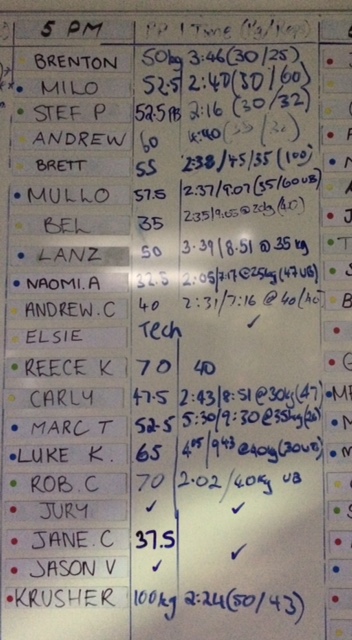 5 PM PP Time (Kg/Reps)
BRENTON 50kg 3:46 (30/25)
MILO 52.5 2:40 (30/60)
STEF P 52.5 PB 2:16 (30/32)
ANDREW 60 4:40
BRETT 55 2:38/45/35 (100)
MULLO 57.5 2:37/9:07 (35/60UB)
BEL 35
LANZ 50 3:39/8:51 @ 35 kg
NAOMI.A 32.5 2:05/7:17 @ 25kg (47 UB)
ANDREW.C 40 2:31/7:16 @ 40
ELSIE Tech ✓
REECE K 70 40
CARLY 47.5 2:43/8:51 @ 30kg (47)
MARC T 52.5 5:30/9:30 @ 35kg
LUKE K. 65 4:05/9:43 @ 40kg (30UB)
ROB.C 70 2:02/40kg UB
JURY ✓ ✓
JANE.C 37.5
JASON V ✓ ✓
KRUSHER 100kg 2:24 (50/43)